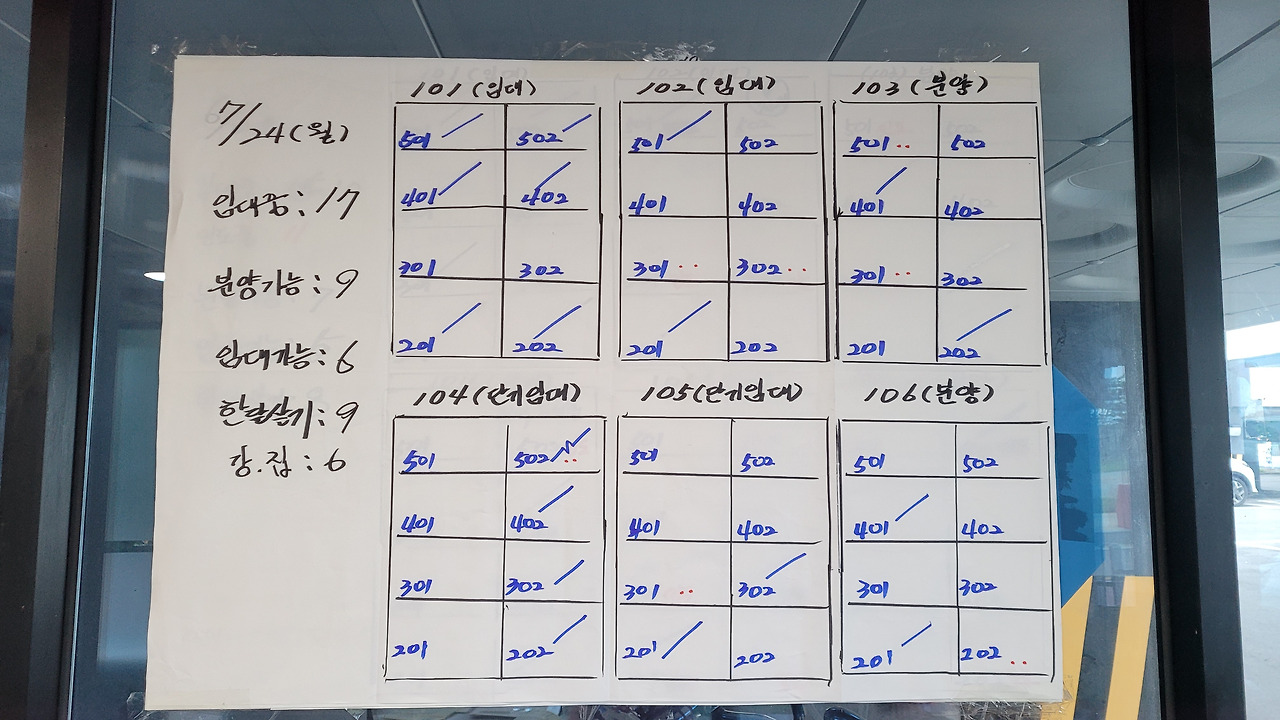 7/24(월)
임대중: 17
분양가능: 9
임대가능: 6
한달살기: 9
강.집: 6
101(임대)
501 502
401 402
301 302
201 202
102(임대)
501 502
401 402
301 302
201 202
103(분양)
501 502
401 402
301 302
201 202
104(단기임대)
501 502
401 402
301 302
201 202
105(단기임대)
501 502
401 402
301 302
201 202
106(분양)
501 502
401 402
301 302
201 202